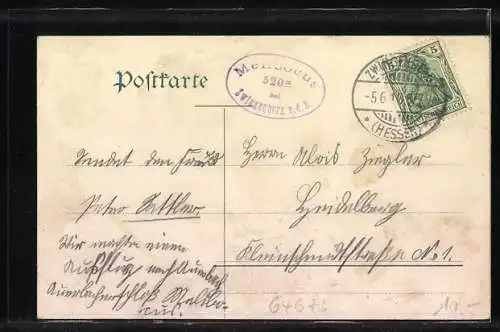 Postkarte
Melibocus
520m
bei
Zwingenberg a.d.B.
5
ZWINGENBERG
-5.6.1
* (HESSEN) *
Sendet dein Freund
Peter Sattler.
Wir machten einen
Ausflug nach Auerbach
Auerbacherschloß Melibo-
cus.
Herrn Alois Ziegler
Heidelberg
Kleinschmidtstraße No. 1.
64676
10.-